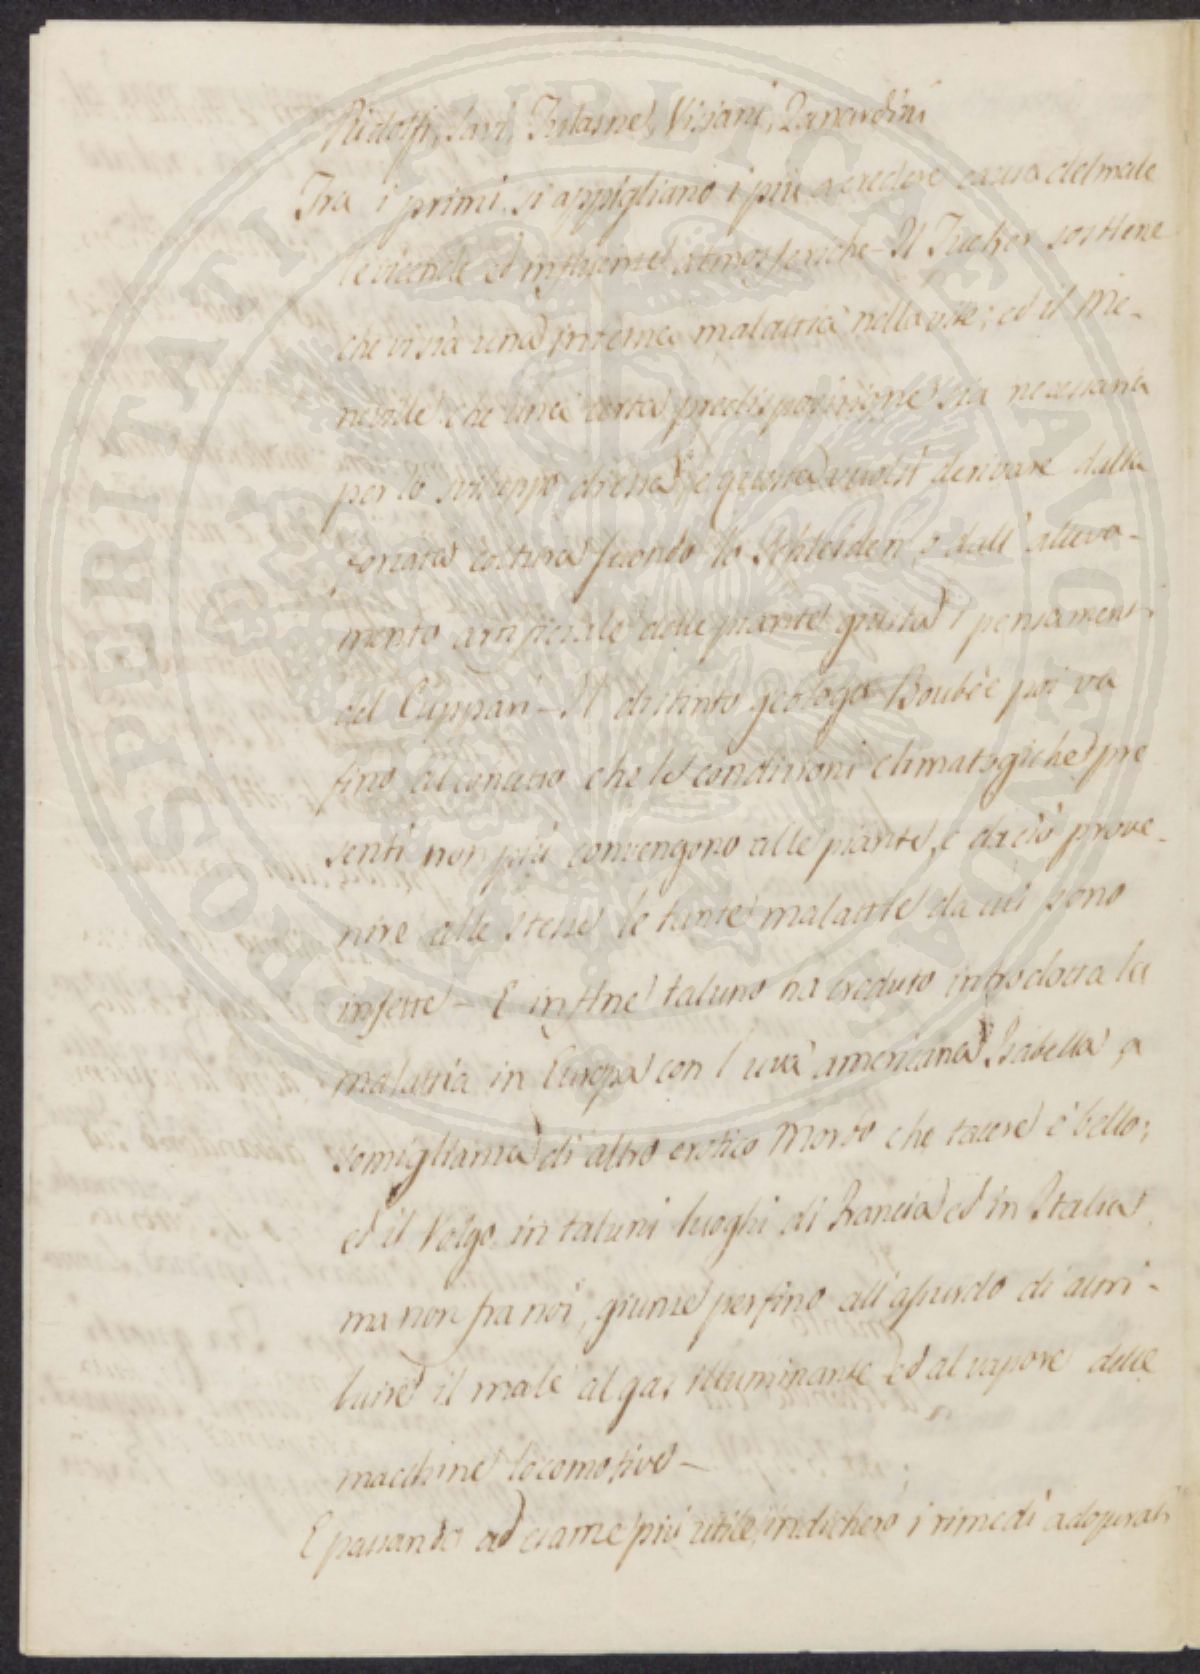 Ridolfi, Savi, Tulasne, Visiani, Zanardini
Tra i primi si appigliano i più a credere causa del male
le vicende ed influenze atmosferiche – Il Tucker sostiene
che vi sia una interna malattia nella vite; ed il Me-
neville che una certa predisposizione sia necessaria
per lo sviluppo di essa, e questa vuolsi derivare dalla
forzata coltura secondo lo Schleiden, o dall' alleva-
mento artificiale delle piante giusta i pensamenti
del Cuppari – Il distinto geologo Boubèe poi va
fino al concetto che le condizioni climatogiche pre
senti non più convengono alle piante, e da ciò prove-
nire alle stesse le tante malattie da cui sono
infette – E infine taluno ha creduto introdotta la
malattia in Europa con l'uva americana Isabella, a
somiglianza di altro erotico morbo che tacere è bello;
ed il Volgo in taluni luoghi di Francia ed in Italia
ma non fra noi, giunse perfino all'assurdo di attri-
buire il male al gas illuminante ed al vapore delle
macchine locomotive –
E passando ad esame più utile, indicherò i rimedi adoperati
PROSPERITATI PUBLICAE AUGENDAE